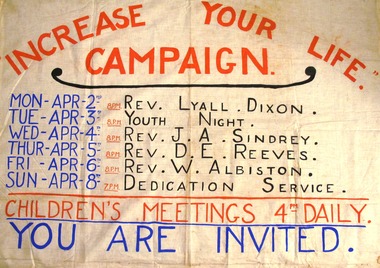 "INCREASE YOUR LIFE."
CAMPAIGN.
MON-APR-2ND 8PM REV. LYALL. DIXON.
TUE-APR-3RD 8PM YOUTH NIGHT.
WED-APR-4TH 8PM REV. J. A. SINDREY.
THUR-APR-5TH 8PM REV. D. E. REEVES.
FRI-APR-6TH 8PM REV. W. ALBISTON.
SUN-APR-8TH 7PM DEDICATION SERVICE.
CHILDREN'S MEETINGS 4PM DAILY.
YOU ARE INVITED.